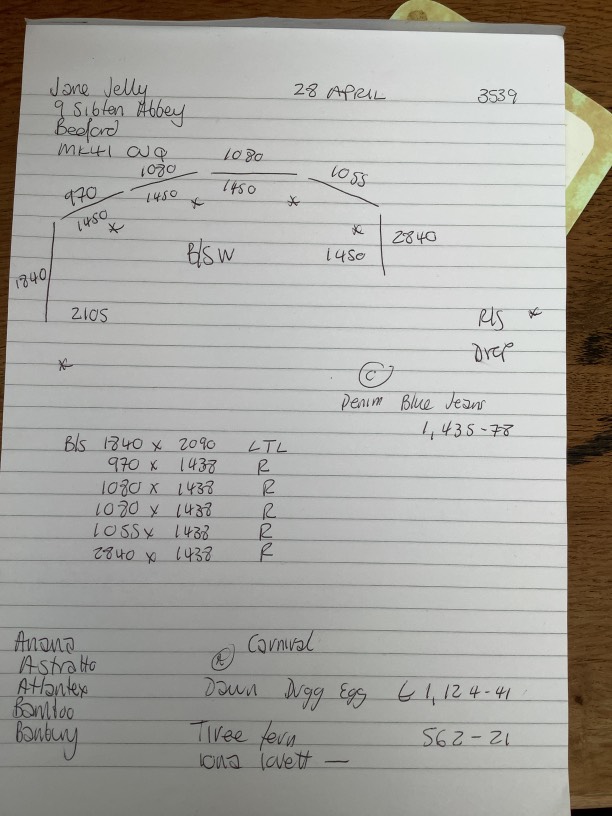 Jane Jelly 28 APRIL 3539
9 Sibton Abbey
Bedford
MK41
1080 1080
970 1450 1450 1055
1450
B/SW 1450 2840
1840
2105
R/S *
*
C
Denim Blue Jeans
1,435-78
B/S 1840 x 2090 LTL
970 x 1438 R
1080 x 1438 R
1080 x 1438 R
1055 x 1438 R
2840 x 1438 R
Anona
Astratto
Atlantex
Bamboo
Banbury
Carnival
Dawn Egg 1,124-41
Tiree fern 562-21
iona lovett —